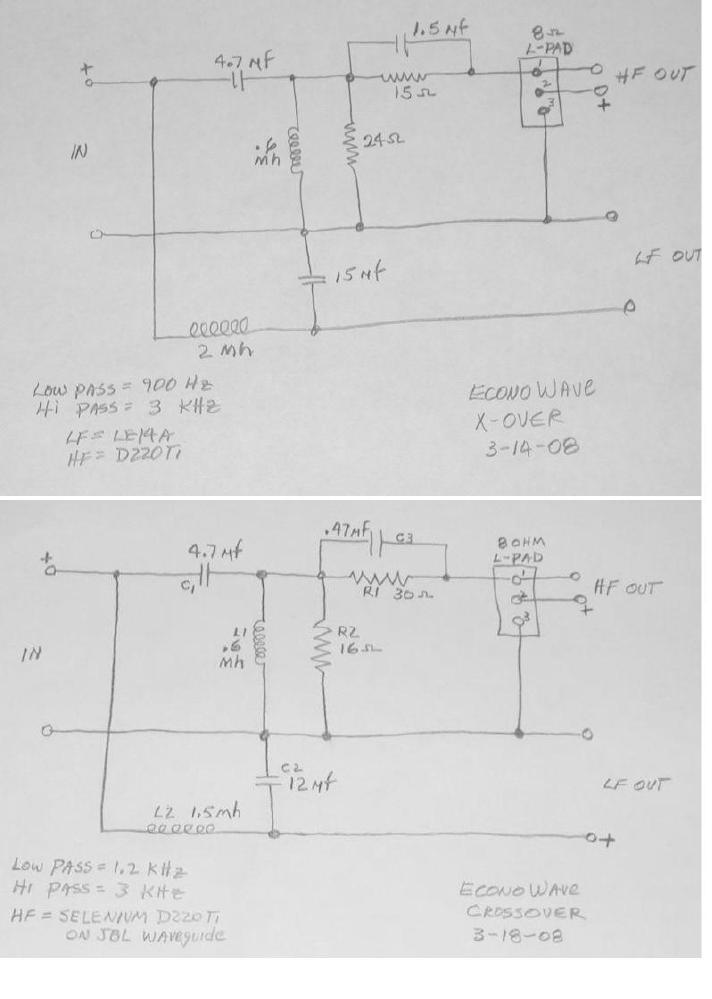 1.5 Mf
8Ω
L-PAD
4.7 Mf
+
1
HF OUT
15 Ω
2
3
+
IN
.6
Mh
24Ω
LF OUT
15 Mf
2 Mh
LOW PASS = 900 Hz
Hi PASS = 3 KHz
LF = LE14A
HF = D220Ti
ECONOWAVE
X-OVER
3-14-08
.47Mf
C3
8 OHM
L-PAD
4.7 Mf
+
C1
R1 30Ω
1
HF OUT
2
+
3
IN
L1
.6
Mh
R2
16Ω
C2
12 Mf
LF OUT
L2 1.5mh
+
LOW PASS = 1.2 KHz
Hi PASS = 3 KHz
HF = SELENIUM D220Ti
ON JBL WAVEguide
ECONOWAVE
CROSSOVER
3-18-08